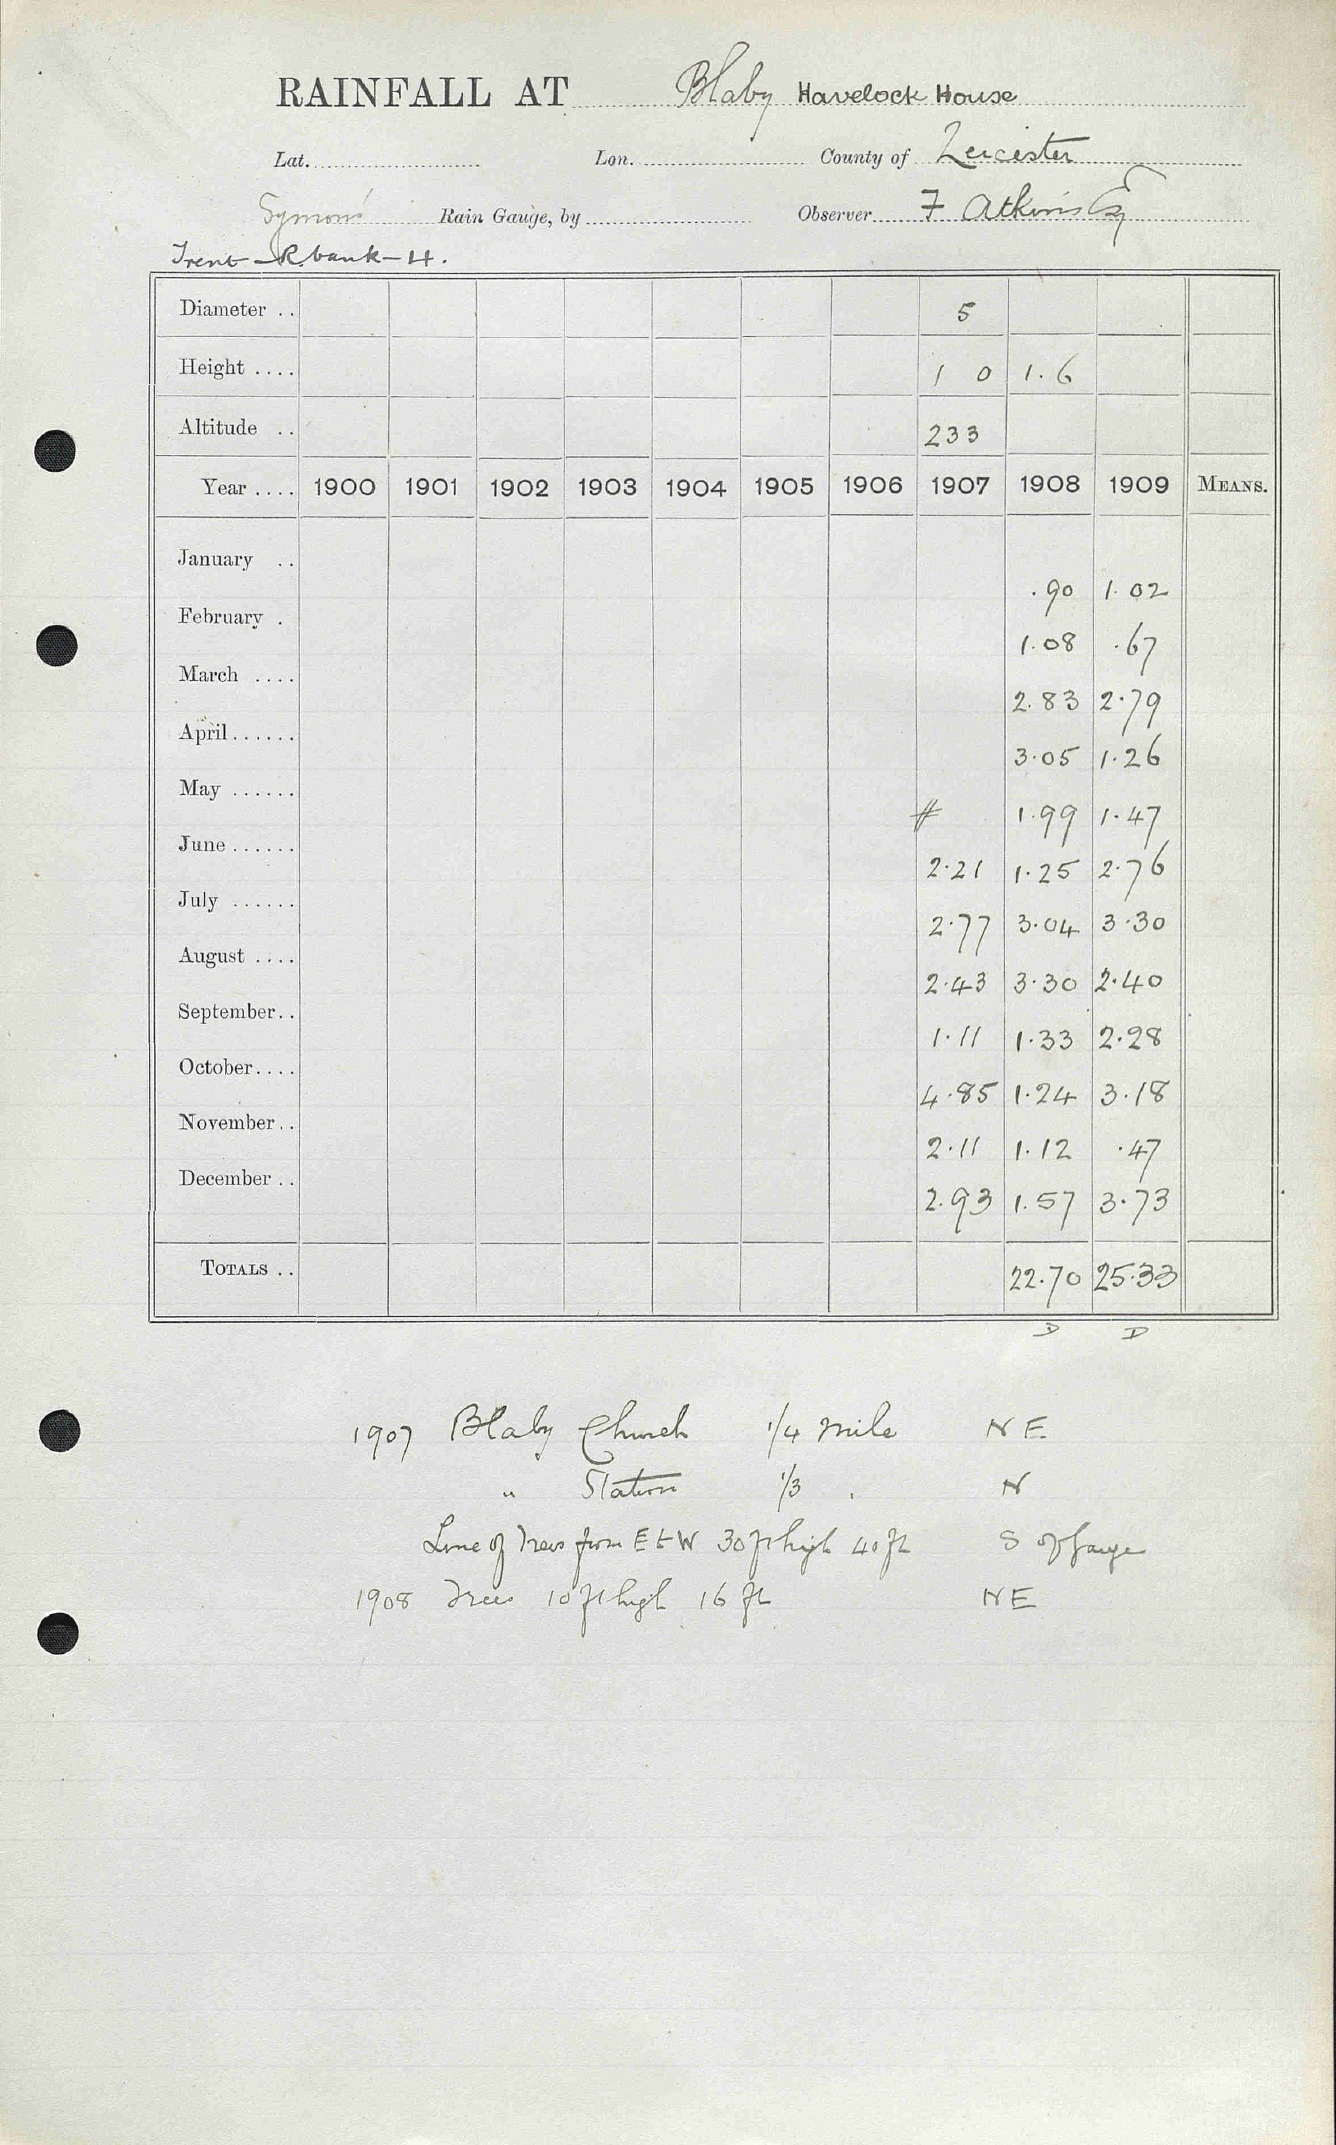 RAINFALL AT Blaby Havelock House
Lat. Lon. County of Leicester
Symons Rain Gauge, by Observer F Atkins Esq
Trent - R. bank - 4.
Diameter .. 5
Height .... 1 0 1.6
Altitude .. 233
Year .... 1900 1901 1902 1903 1904 1905 1906 1907 1908 1909 MEANS.
January .. .90 1.02
February . 1.08 .67
March .... 2.83 2.79
April ...... 3.05 1.26
May ...... # 1.99 1.47
June ...... 2.21 1.25 2.76
July ...... 2.77 3.04 3.30
August .... 2.43 3.30 2.40
September.. 1.11 1.33 2.28
October.... 4.85 1.24 3.18
November.. 2.11 1.12 .47
December .. 2.93 1.57 3.73
TOTALS .. 22.70 25.33
D D
1907 Blaby Church 1/4 mile NE
" Station 1/3 . N
Line of Trees from E to W 30 ft high 40 ft S of Gauge
1908 Trees 10 ft high 16 ft NE